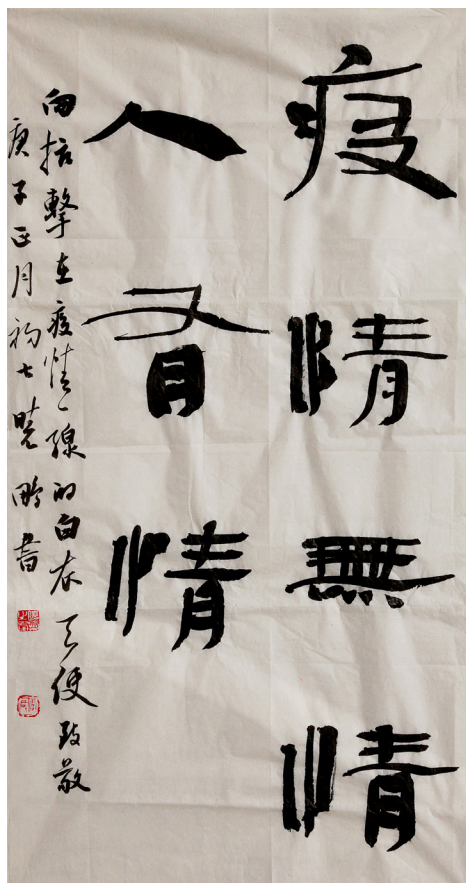 疫情無情
人有情
向抗擊在疫情一線的白衣天使致敬
庚子正月初七曉鵬書